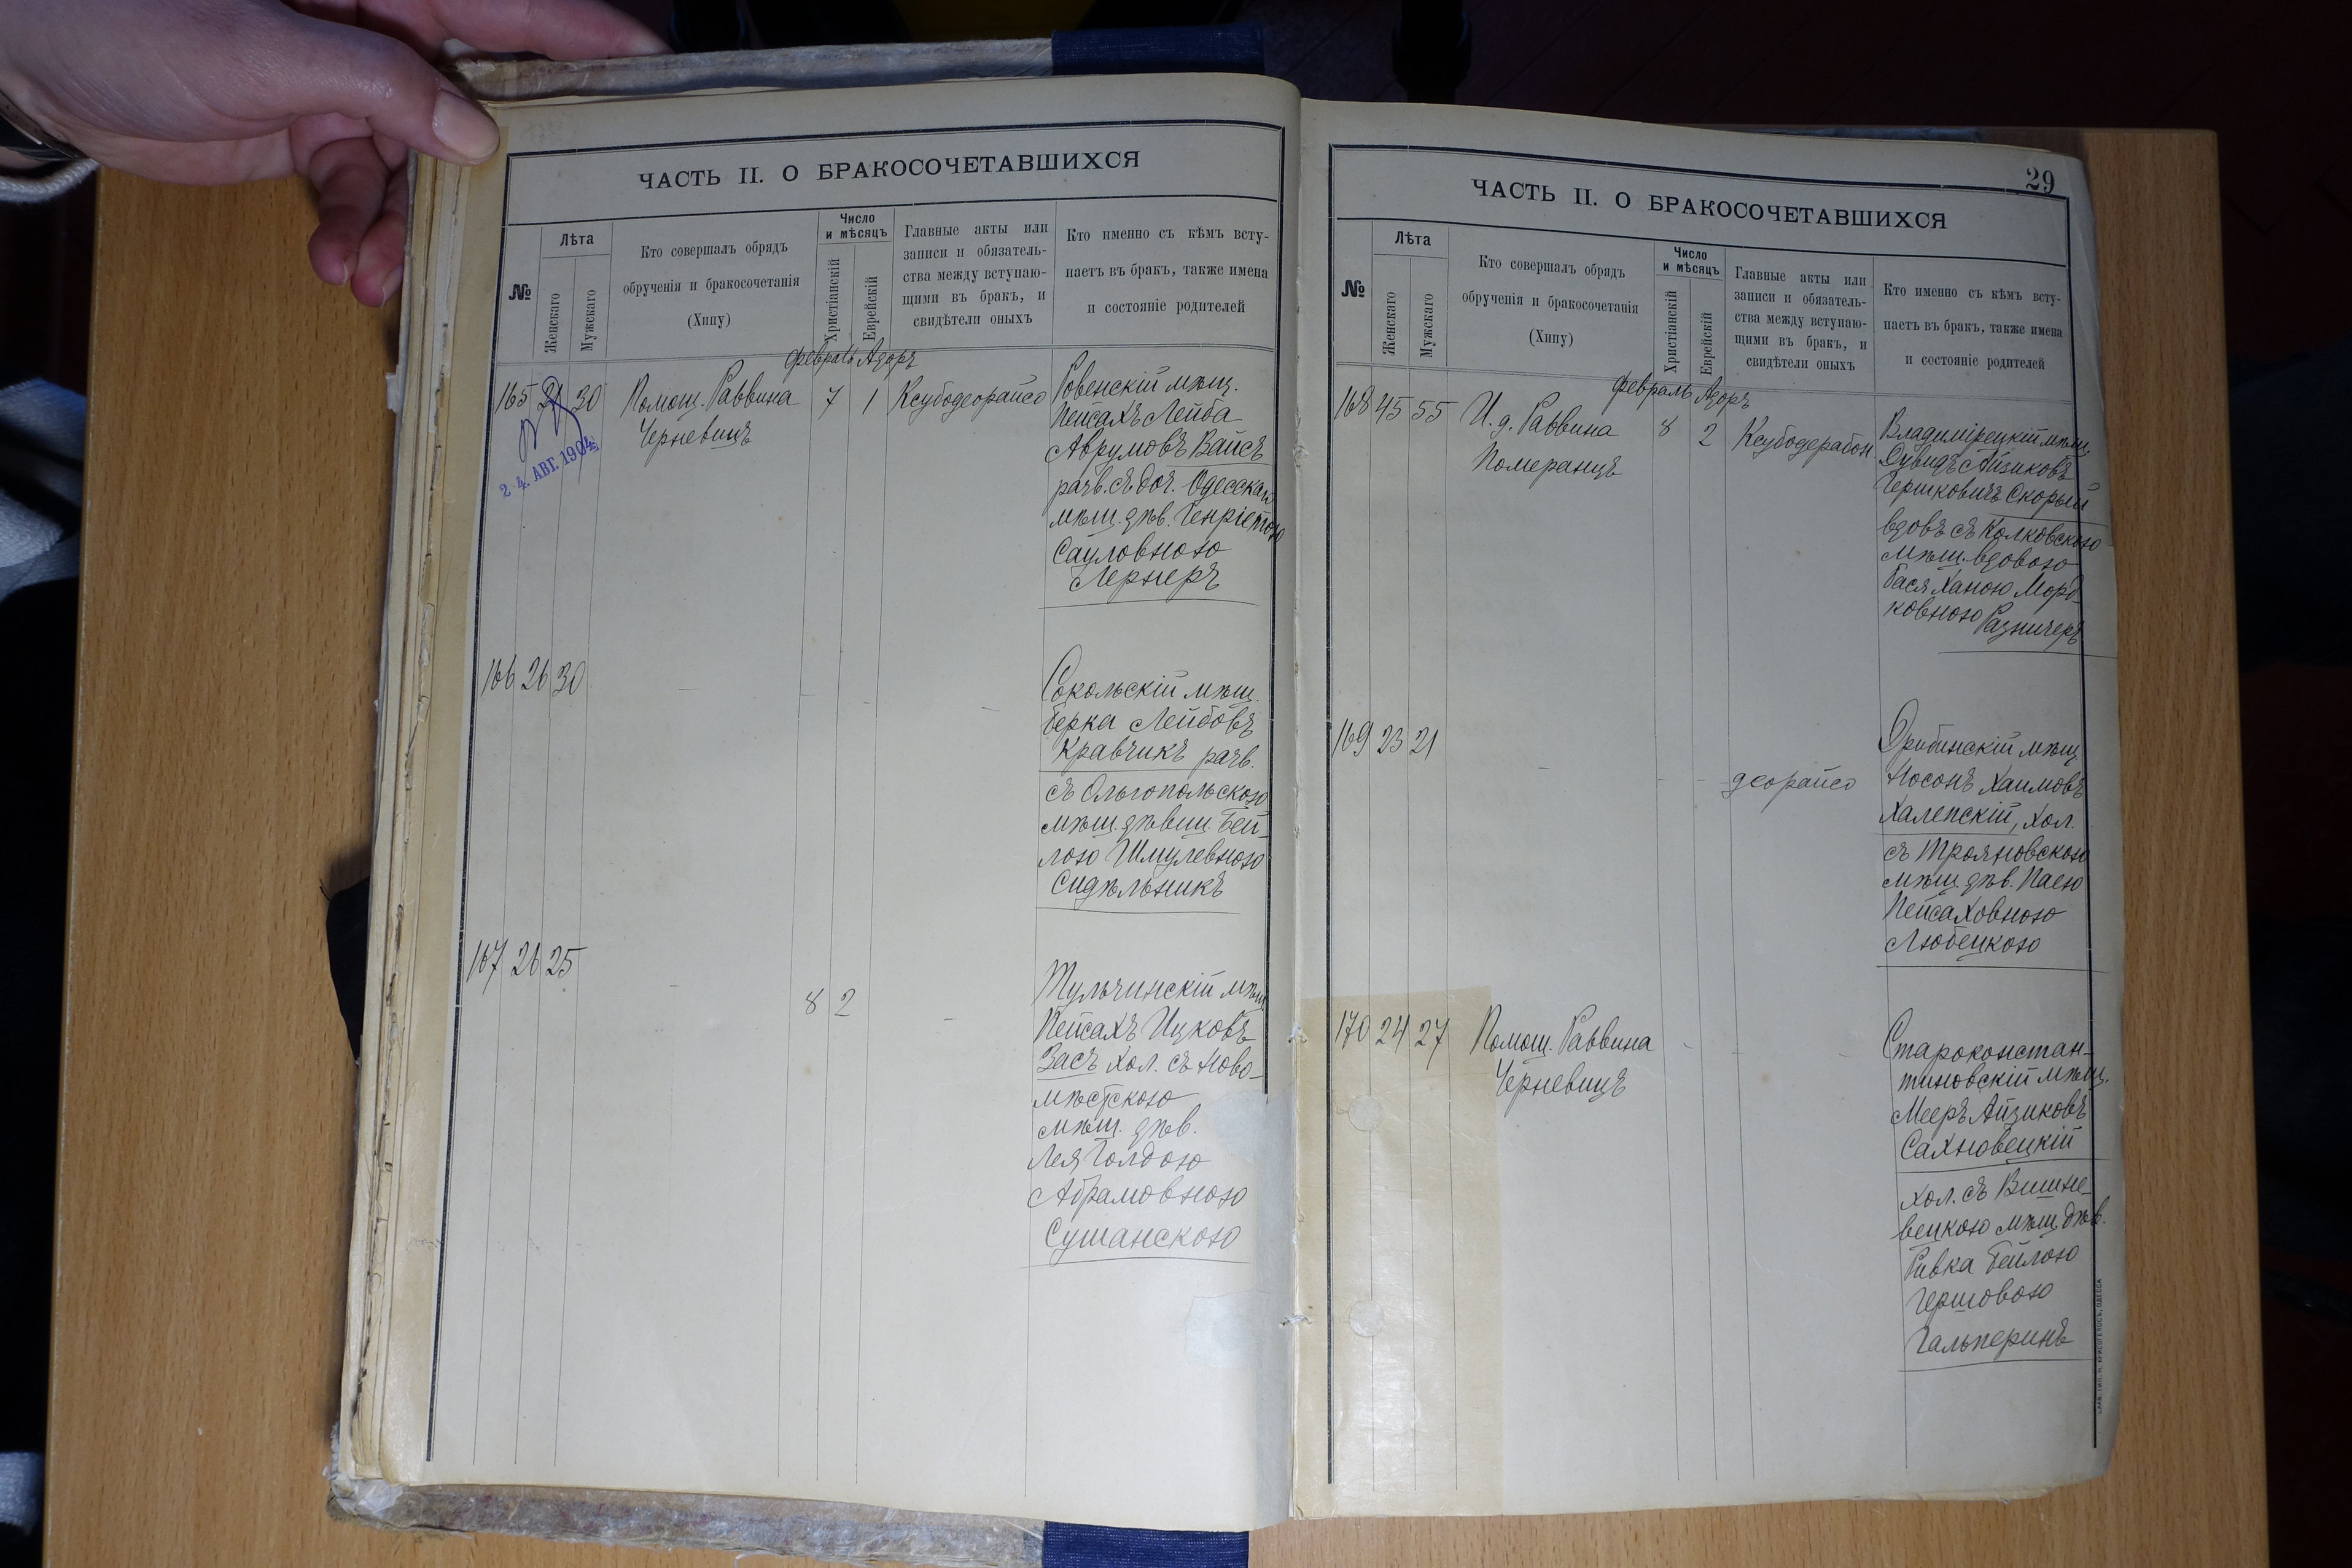 ЧАСТЬ II. О БРАКОСОЧЕТАВШИХСЯ
№
Лѣта
Женскаго
Мужскаго
Кто совершалъ обрядъ
обрученія и бракосочетанія
(Хипу)
Число
и мѣсяцъ
Христіанскій
Еврейскій
Главные акты или
записи и обязатель-
ства между вступаю-
щими въ бракъ, и
свидѣтели оныхъ
Кто именно съ кѣмъ всту-
паетъ въ бракъ, также имена
и состояніе родителей
Февраль Адоръ
165 21 30 Помощ. Раввина 7 1 Ксубодеорайсо
Черневицъ
2 4. АВГ. 1904
Ровенскій мѣщ.
Пейсахъ Лейба
Аврумовъ Вайсъ
разв. съ доч. Одесскаго
мѣщ. дѣв. Генріетою
Сауловною
Лернеръ
166 26 30 - - - -
Сокольскій мѣщ.
Берка Лейбовъ
Кравчикъ разв.
съ Ольгопольскою
мѣщ. дѣвиц. Бей-
лою Шмулевною
Сидѣльникъ
167 26 25 - 8 2 -
Тульчинскій мѣщ
Пейсахъ Ицковъ
Засъ хол. съ Ново-
мѣстскою
мѣщ. дѣв.
Лея Голдою
Абрамовною
Сушанскою
29
ЧАСТЬ II. О БРАКОСОЧЕТАВШИХСЯ
№
Лѣта
Женскаго
Мужскаго
Кто совершалъ обрядъ
обрученія и бракосочетанія
(Хипу)
Число
и мѣсяцъ
Христіанскій
Еврейскій
Главные акты или
записи и обязатель-
ства между вступаю-
щими въ бракъ, и
свидѣтели оныхъ
Кто именно съ кѣмъ всту-
паетъ въ бракъ, также имена
и состояніе родителей
Февраль Адоръ
168 45 55 И. д. Раввина 8 2 Ксубодерабон
Померанцъ
Владимірецкій мѣщ.
Дувидъ Айзиковъ
Гершковичъ Скорый
вдовъ съ Колковскою
мѣщ. вдовою
Бася Ханою Морд-
ковною
169 23 21 - - - деорайсо
мѣщ.
Носонъ Хаимовъ
Халепскій, хол.
съ Трояновскою
мѣщ. дѣв. Песею
Пейсаховною
Любецкою
170 24 27 Помощ. Раввина - - -
Черневицъ
Староконстан-
тиновскій мѣщ.
Мееръ Айзиковъ
Сахновецкій
хол. съ Вишне-
вецкою мѣщ. дѣв.
Ривка Бейлою
Гершовою
Гальперинъ